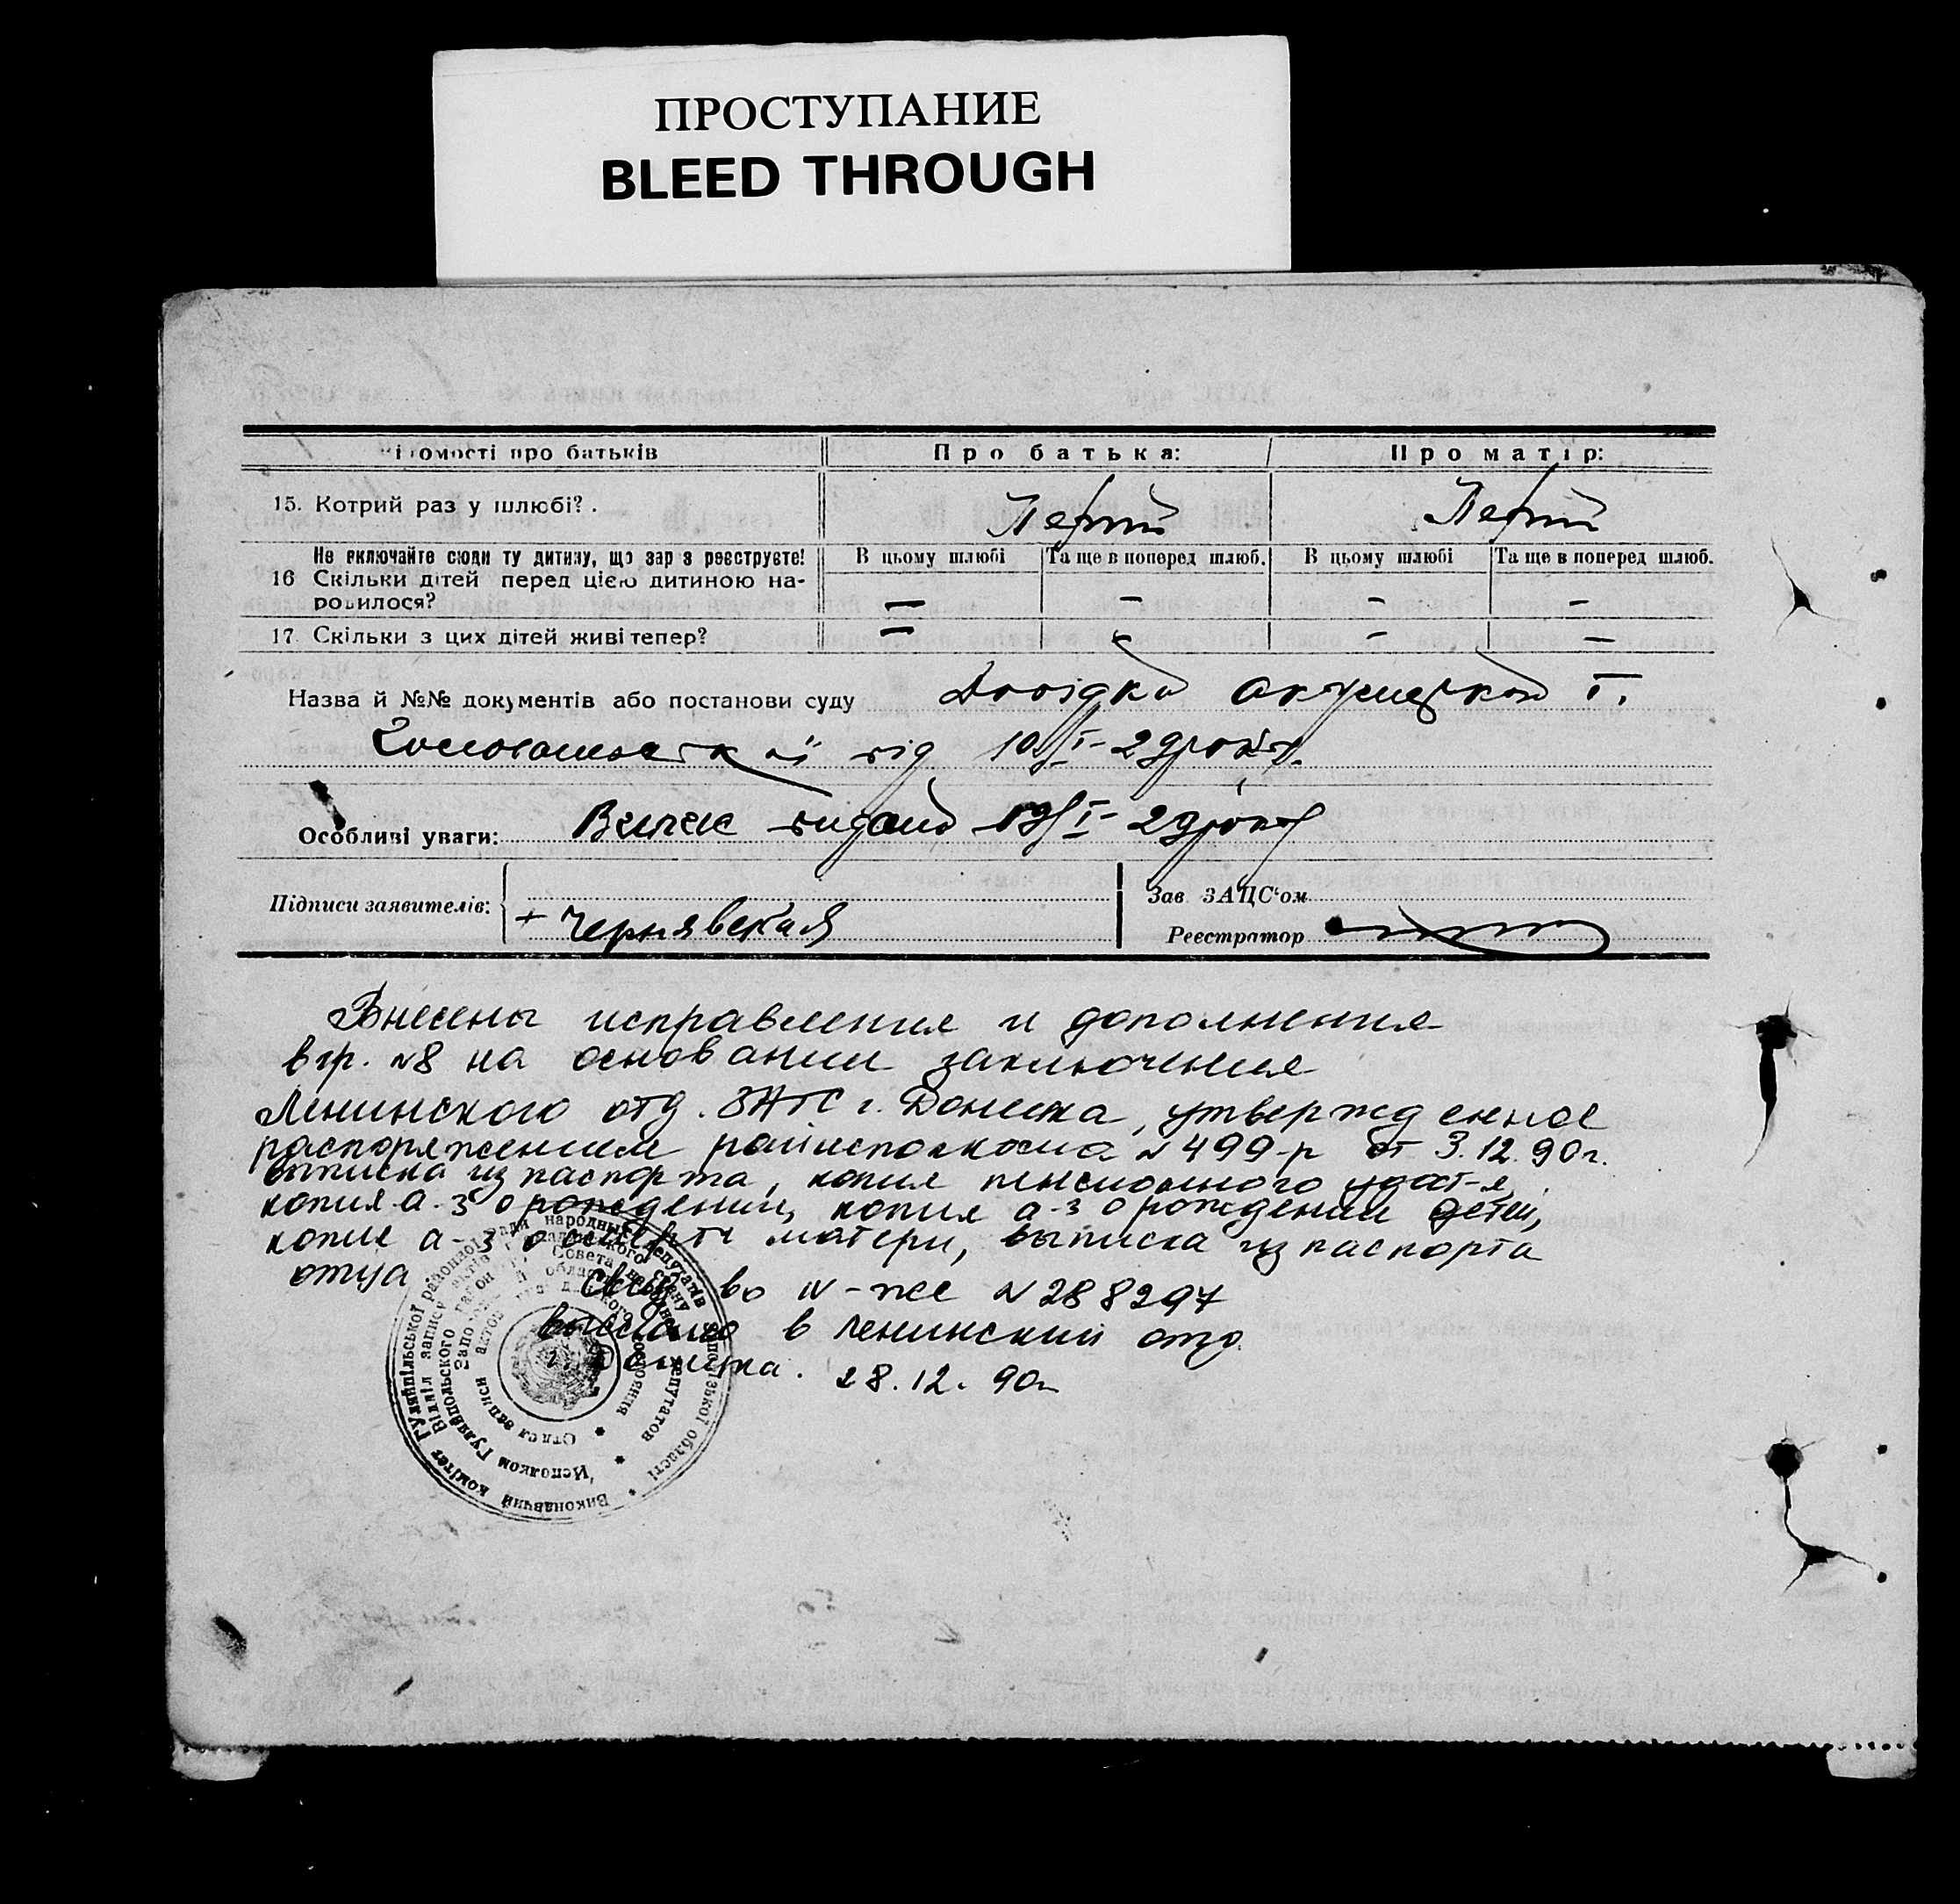 ПРОСТУПАНИЕ
BLEED THROUGH
ідомості про батьків Про батька: Про матір:
15. Котрий раз у шлюбі? . Перший Перший
Не включайте сюди ту дитину, що зараз реєструєте! В цьому шлюбі Та ще в поперед шлюб. В цьому шлюбі Та ще в поперед шлюб.
16 Скільки дітей перед цією дитиною на-
родилося? — — — —
17. Скільки з цих дітей живі тепер? — — — —
Назва й №№ документів або постанови суду Довідка
від 10/I-29 року.
Особливі уваги: видано 19/I-29 року
Підписи заявителів: Зав. ЗАЦС'ом
+ Чернявская Реєстратор
Внесены исправления и дополнения
в гр. №8 на основании заключения
Ленинского отд. ЗАГС г. Донецка, утвержденное
распоряжением райисполкома №499-р от 3.12.90г.
выписка из паспорта, копия пенсионного удост-я,
копия а-з о рождении, копия а-з о рождении детей,
копия а-з о смерти матери, выписка из паспорта
отца
Свид-во IV-жс №288297
выслано в Ленинский отд.
г. Донецка. 28.12.90г
Виконавчий комітет Гуляйпільської районної Ради народних депутатів Запорізької області
Відділ запису актів
Исполком Гуляйпольского районного Совета народных депутатов
Отдел записи актов гражданского состояния